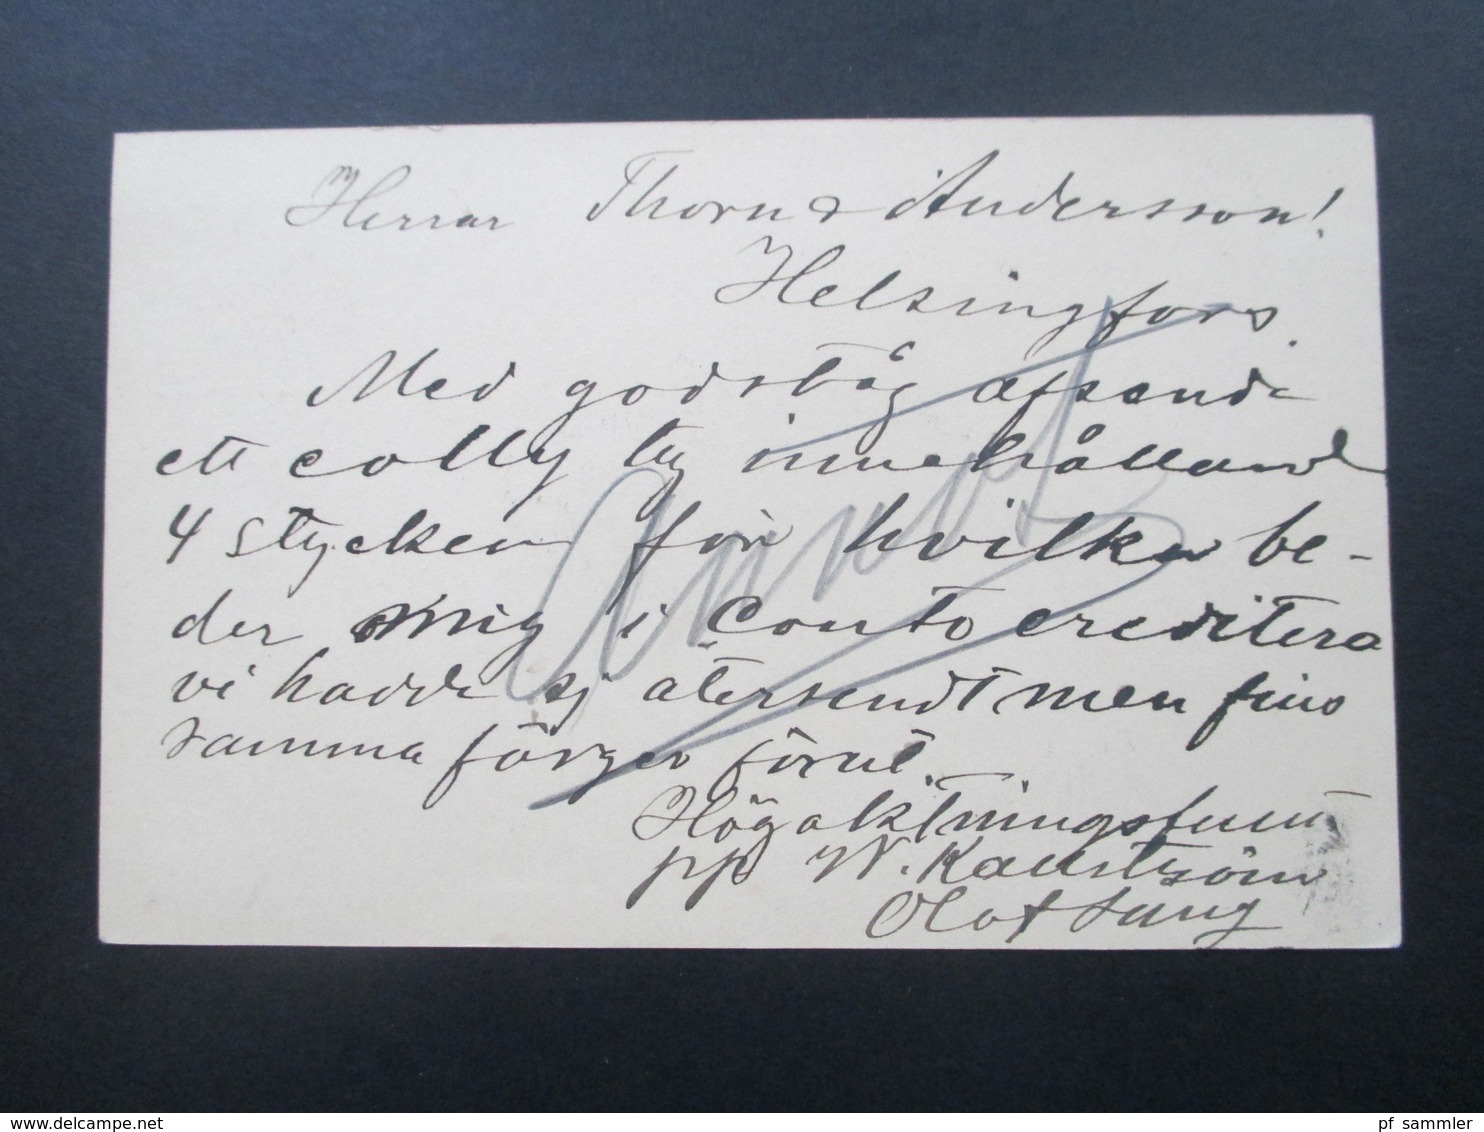 Herrar Thorn & Andersson!
Helsingfors.
Med godståg afsende
ett colly tyg innehålland
4 stycken för hvilka be-
der mig i Conto creditera
vi hadde ej återsendt men fins
samma färger förut.
Högaktningsfullt
pp W.
Olof Lung
Annot
delcampe.net
pf_sammler